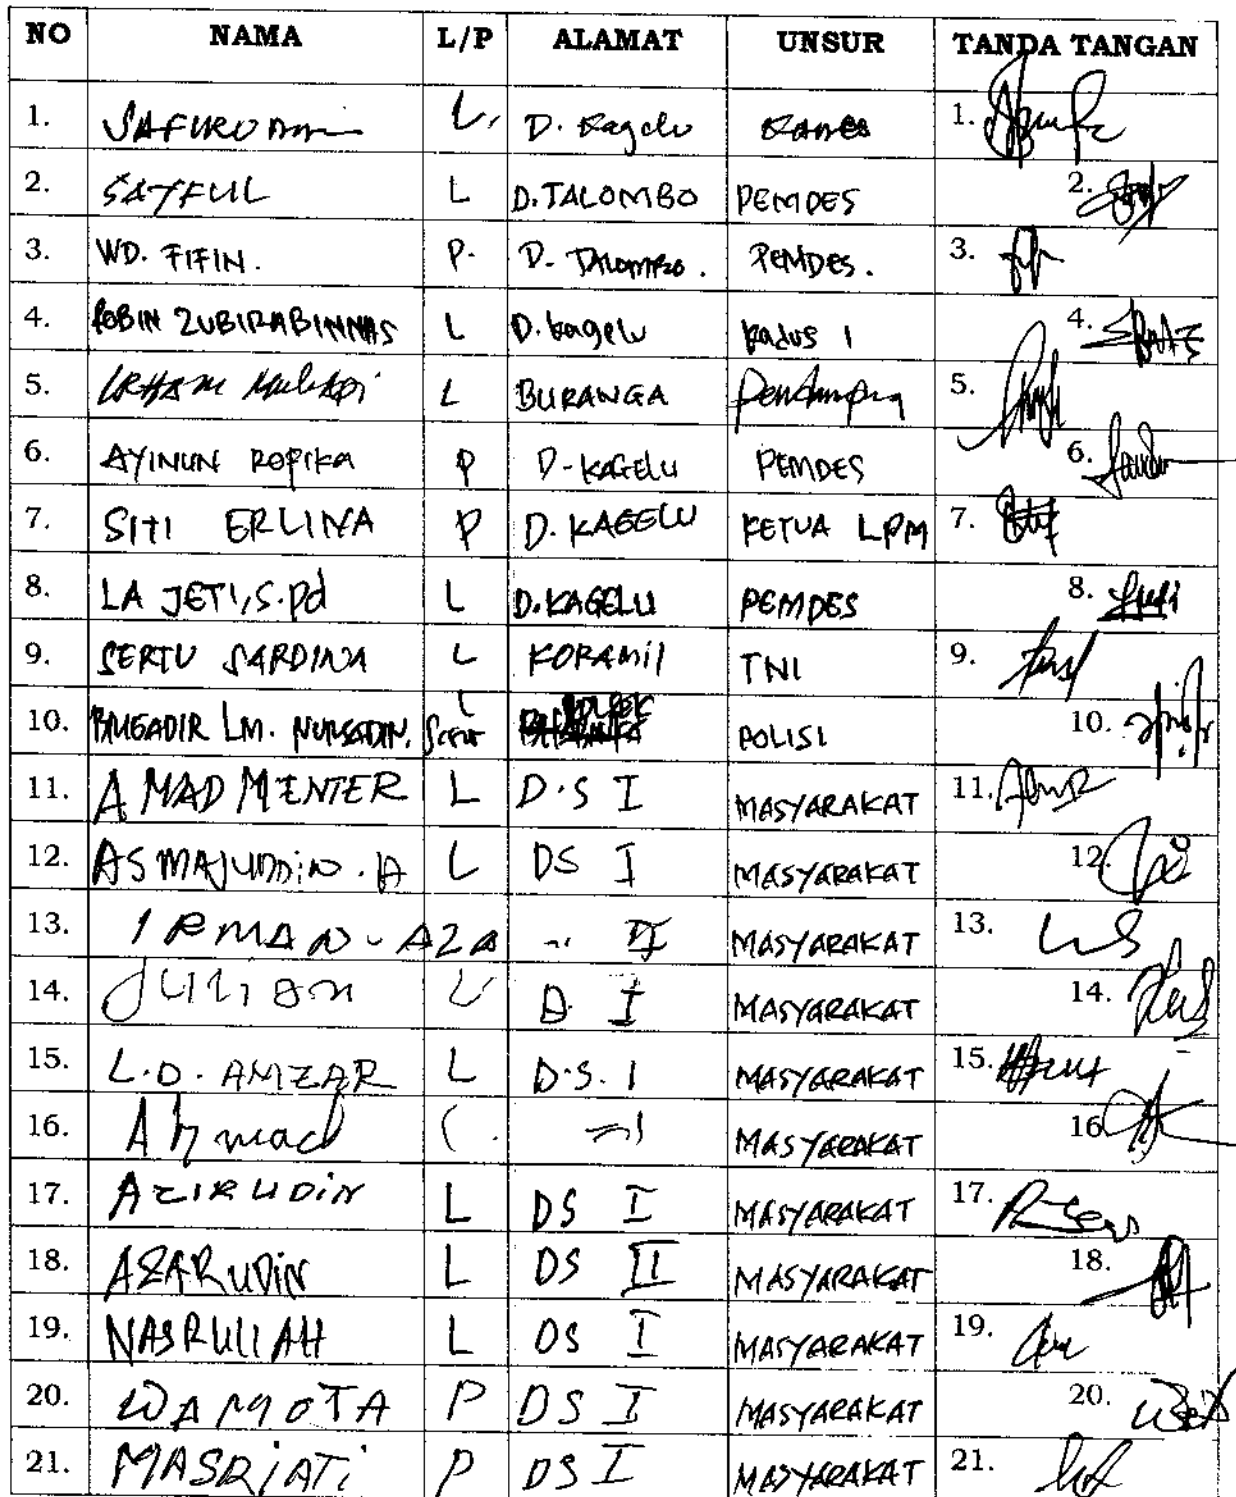 NO NAMA L/P ALAMAT UNSUR TANDA TANGAN
1. SAFURUDDIN L, D. Kagelu 1.
2. SAYFUL L D. TALOMBO PEMDES 2.
3. WD. FIFIN. P. D. TALOMBO. PEMDES. 3.
4. ROBIN ZUBIRABINNAS L D. kagelu kadus I 4.
5. IRHAM L BURANGA 5.
6. AYINUN ROPIKA P D-KAGELU PEMDES 6.
7. SITI ERLINA P D. KAGELU KETUA LPM 7.
8. LA JETI, S.Pd L D. KAGELU PEMDES 8.
9. SERTU SARDINA L KORAMIL TNI 9.
10. BRIGADIR LM. NURSADIN. L POLSEK POLISI 10.
11. A MAD MENTER L D.S I MASYARAKAT 11.
12. ASMAJUDDIN. A L DS I MASYARAKAT 12.
13. IRMAN - AZA MASYARAKAT 13.
14. JULIAN L D. I MASYARAKAT 14.
15. L.D. AMZAR L D.S. I MASYARAKAT 15.
16. Ahmad MASYARAKAT 16.
17. AZIRUDIN L DS I MASYARAKAT 17.
18. AZARUDIN L DS II MASYARAKAT 18.
19. NASRULLAH L DS I MASYARAKAT 19.
20. WAMOTA P DS I MASYARAKAT 20.
21. MASRIATI P DS I MASYARAKAT 21.